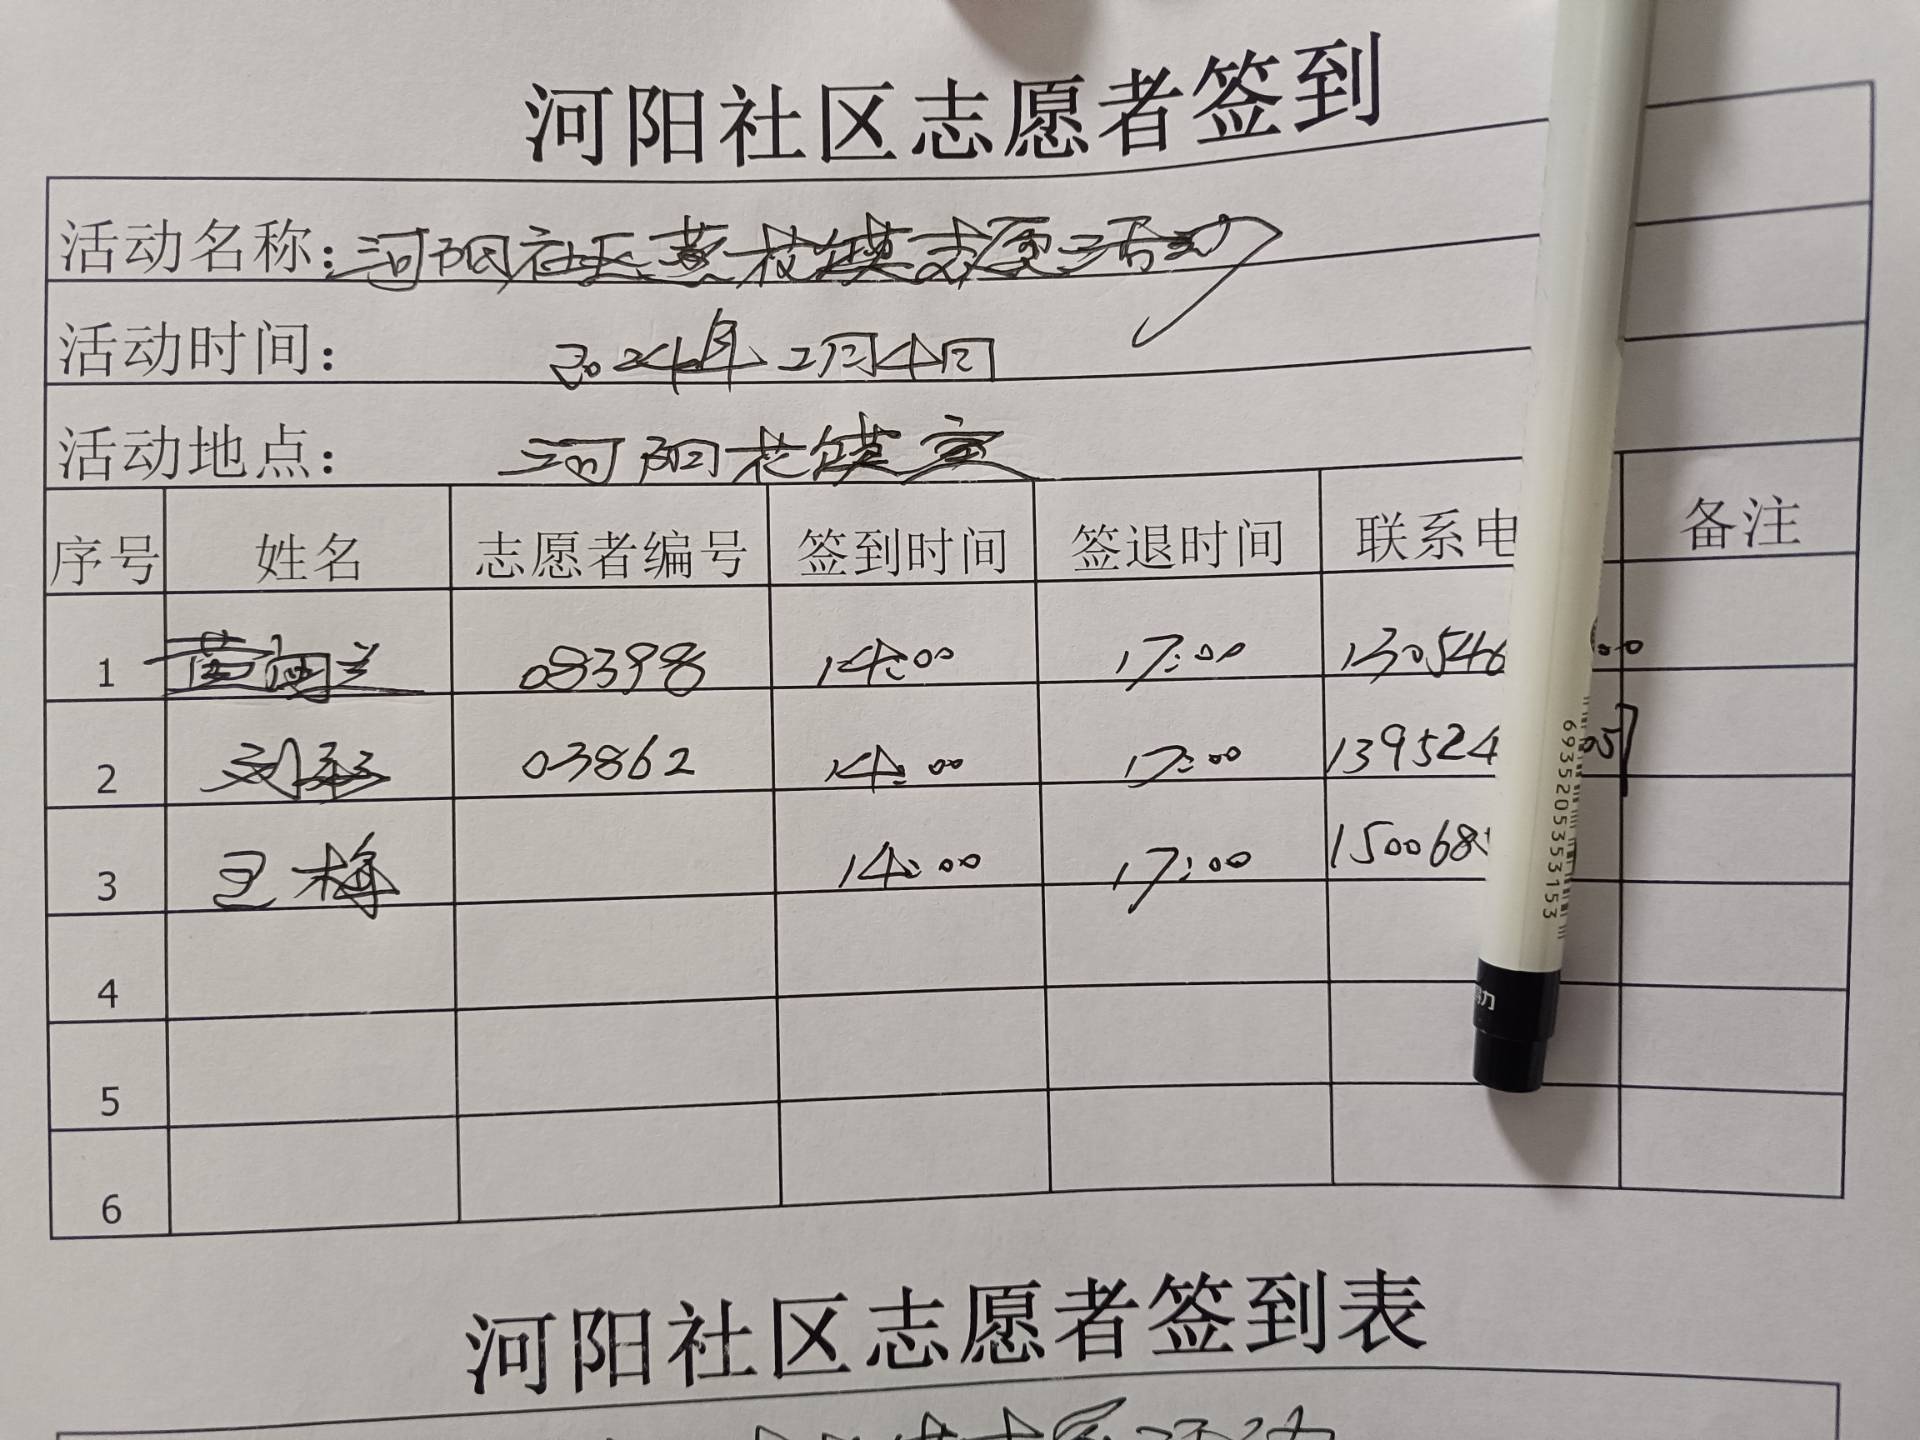 河阳社区志愿者签到
活动名称：河阳社区蒸花馍志愿活动
活动时间： 2024年2月4日
活动地点： 河阳花馍室
序号 姓名 志愿者编号 签到时间 签退时间 联系电 备注
1 083398 14:00 17:00 130546
2 刘 03862 14:00 17:00 139524
3 王梅 14:00 17:00 150068
4
5
6
6935205353153
河阳社区志愿者签到表